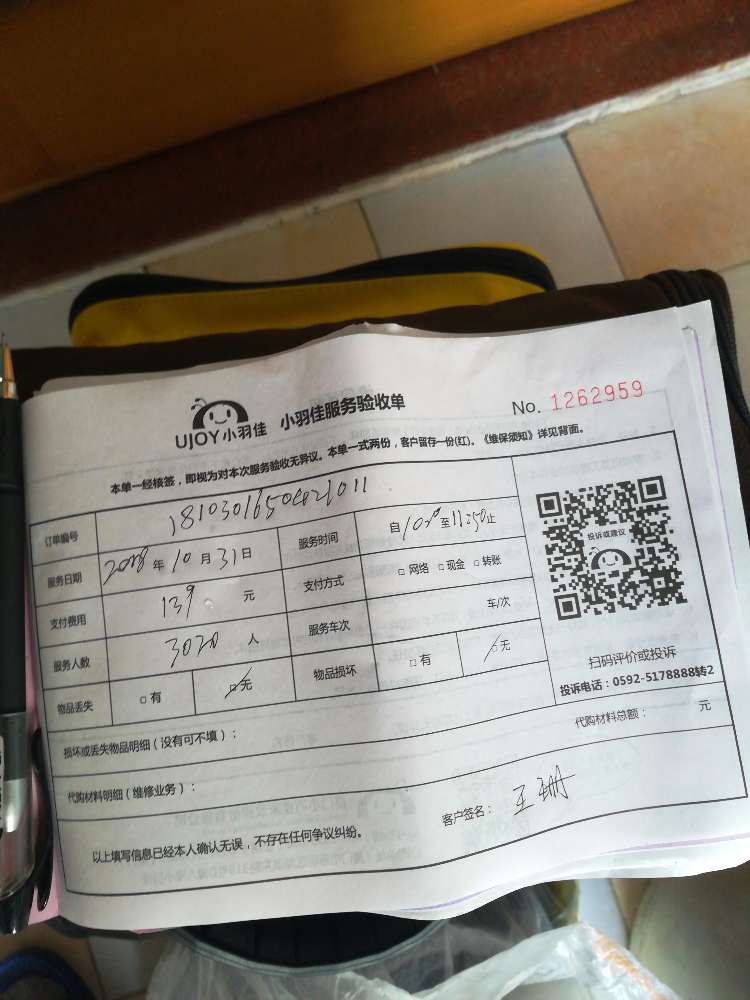 UJOY小羽佳 小羽佳服务验收单 No. 1262959
本单一经核签，即视为对本次服务验收无异议。本单一式两份，客户留存一份(红)。《维保须知》详见背面。
订单编号
服务日期 2018 年 10 月 31 日 服务时间 自 至 11:50 止
支付费用 139 元 支付方式 □ 网络 □ 现金 □ 转账
服务人数 3020 人 服务车次 车/次
物品丢失 □ 有 □ 无 物品损坏 □ 有 □ 无
投诉或建议
扫码评价或投诉
投诉电话：0592-5178888转2
损坏或丢失物品明细（没有可不填）：
代购材料明细（维修业务）： 代购材料总额： 元
以上填写信息已经本人确认无误，不存在任何争议纠纷。 客户签名： 王珊